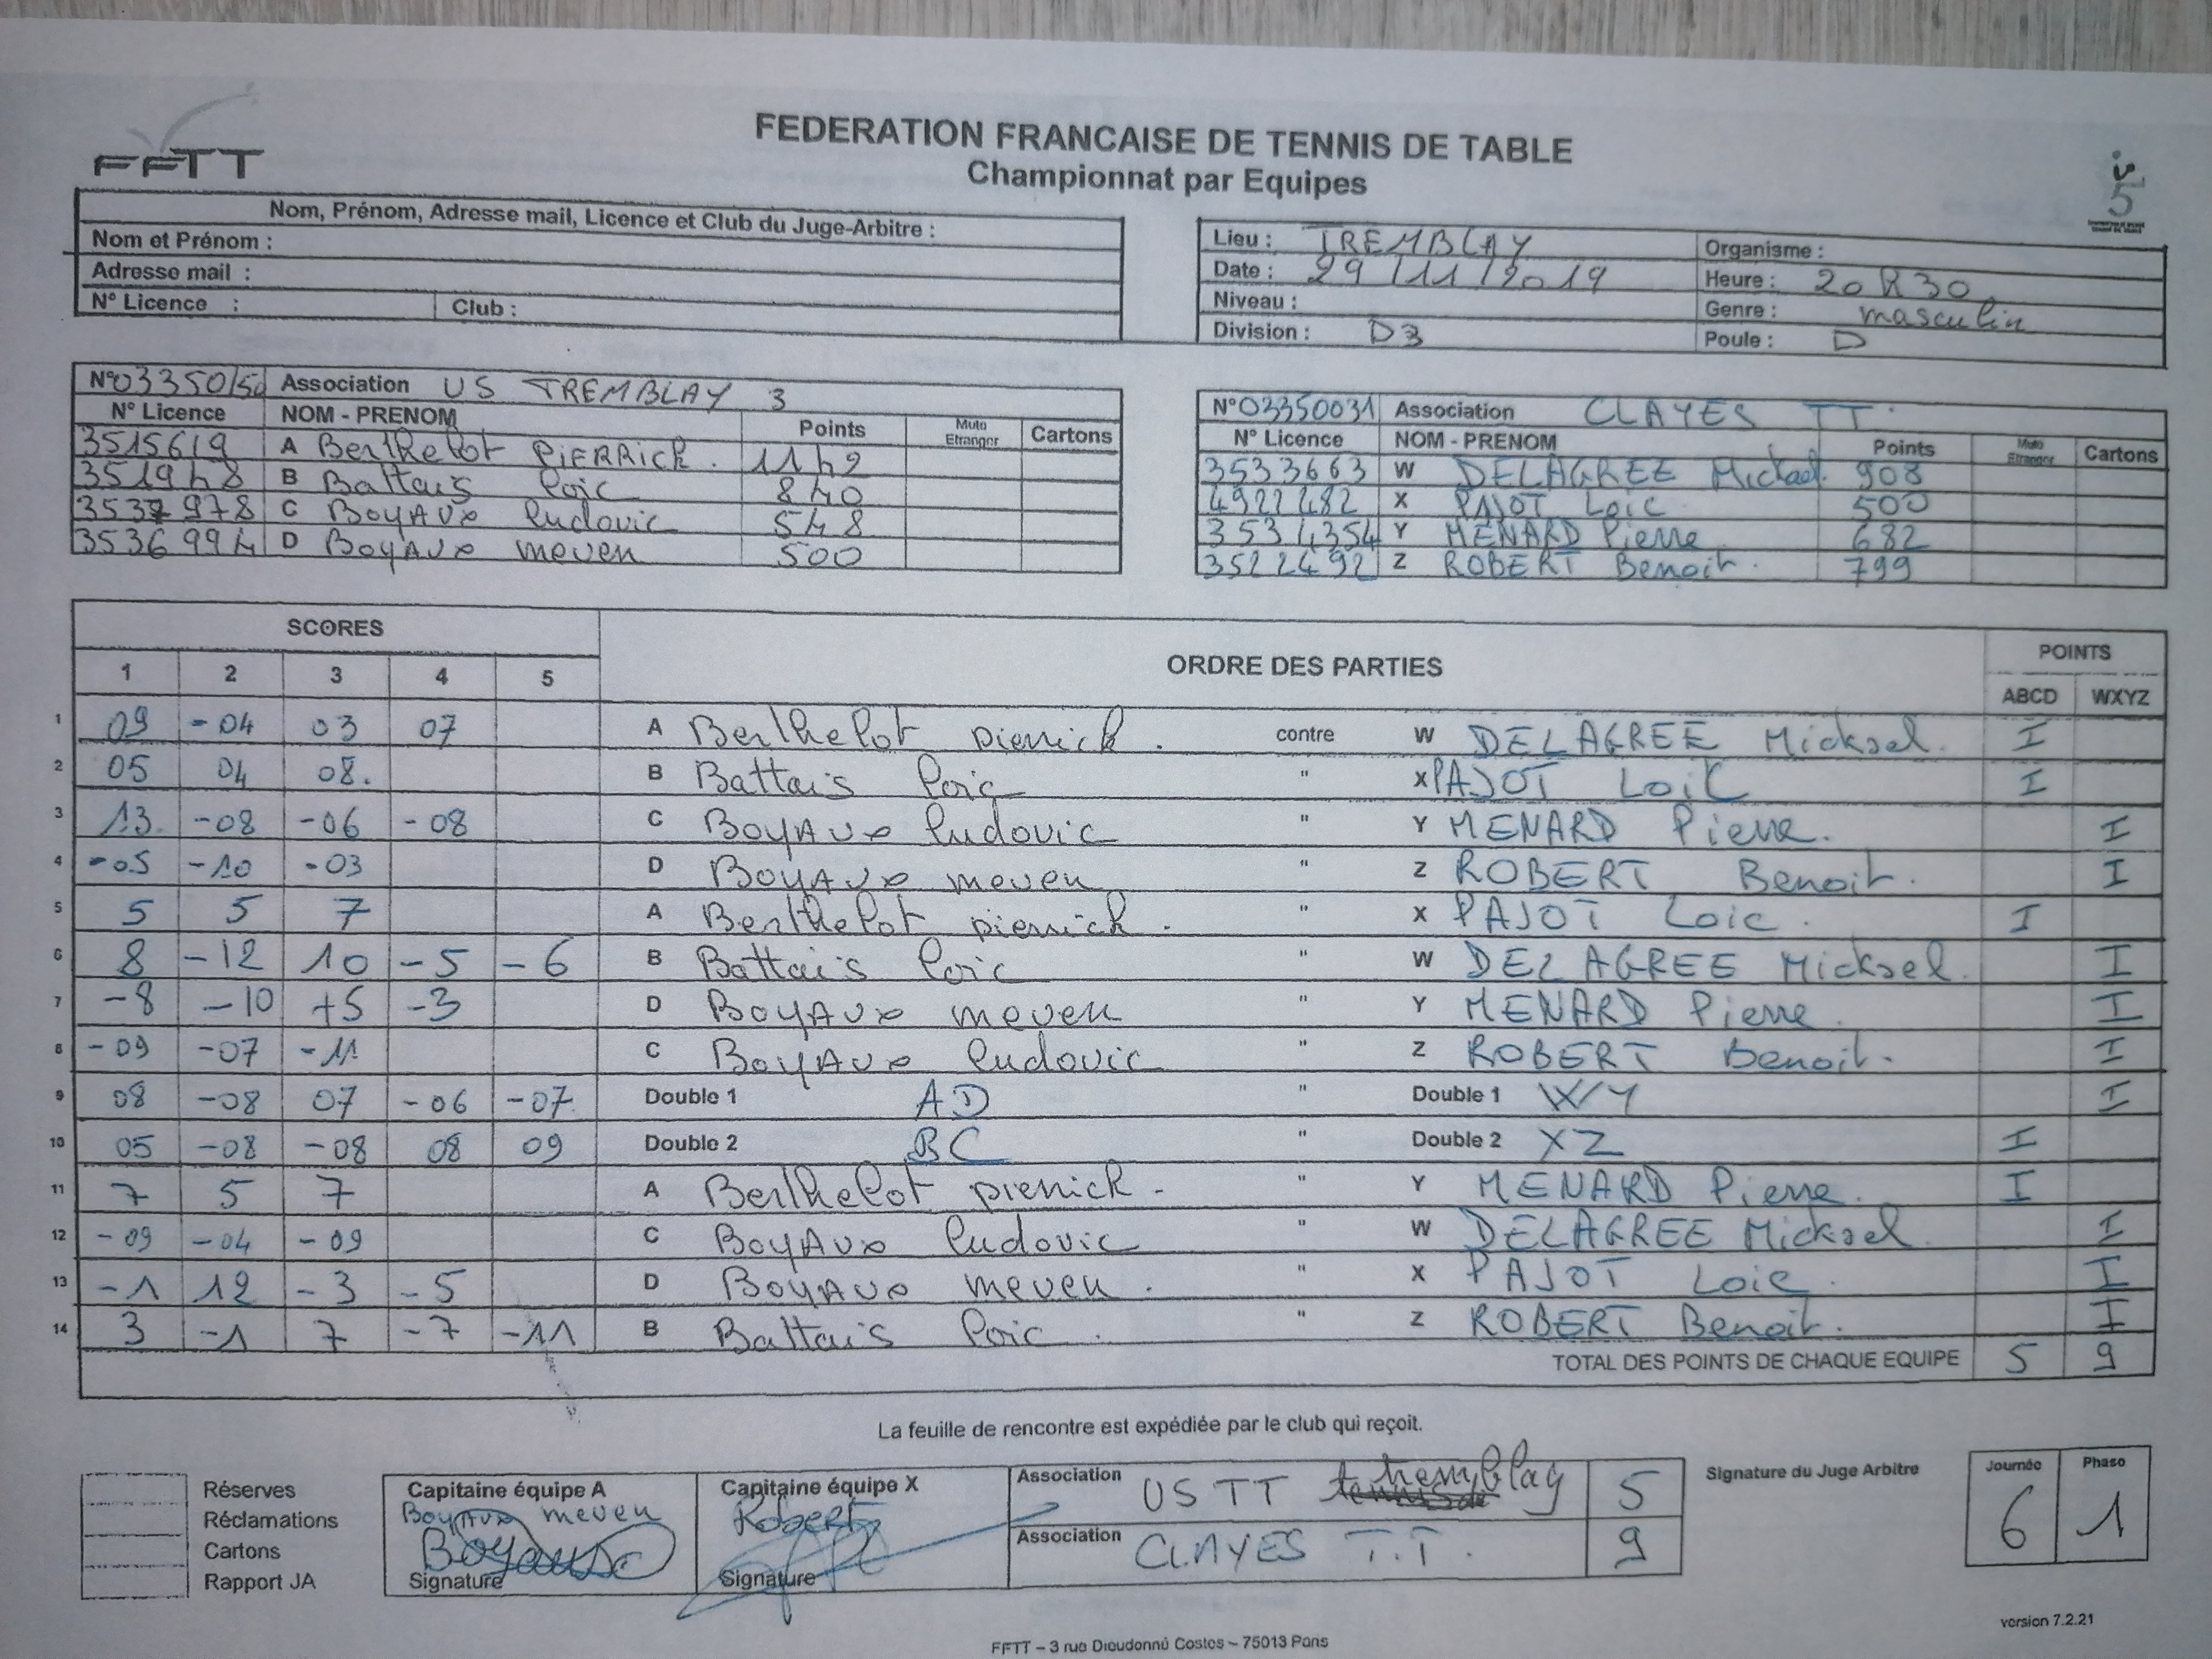 FFTT
FEDERATION FRANCAISE DE TENNIS DE TABLE
Championnat par Equipes
Nom, Prénom, Adresse mail, Licence et Club du Juge-Arbitre :
Nom et Prénom :
Adresse mail :
N° Licence : Club :
Lieu : TREMBLAY Organisme :
Date : 29/11/2019 Heure : 20R30
Niveau : Genre : masculin
Division : D3 Poule : D
N°03350150 Association US TREMBLAY 3
N° Licence NOM - PRENOM Points Muto Etranger Cartons
3515619 A Berthelot PIERRick. 1142
351948 B Battais loic 840
3537978 C BoyAux ludovic 548
3536994 D BoyAux meven 500
N°03350031 Association CLAYES TT.
N° Licence NOM - PRENOM Points Muto Etranger Cartons
3533663 W DELAGREE Mickael. 908
4922482 X PAJOT Loic 500
3534354 Y MENARD Pierre 682
3522492 Z ROBERT Benoit. 799
SCORES ORDRE DES PARTIES POINTS
1 2 3 4 5 ABCD WXYZ
1 09 -04 03 07 A Berthelot pierrick. contre W DELAGREE Mickael. I
2 05 04 08. B Battais loic " X PAJOT LoiC I
3 13. -08 -06 -08 C BoyAux ludovic " Y MENARD Pierre. I
4 -05 -10 -03 D BoyAux meven " Z ROBERT Benoit. I
5 5 5 7 A Berthelot pierrick. " X PAJOT Loic. I
6 8 -12 10 -5 -6 B Battais loic " W DELAGREE Mickael. I
7 -8 -10 +5 -3 D BoyAux meven " Y MENARD Pierre. I
8 -09 -07 -11 C BoyAux ludovic " Z ROBERT Benoit. I
9 08 -08 07 -06 -07 Double 1 AD " Double 1 WY I
10 05 -08 -08 08 09 Double 2 BC " Double 2 XZ I
11 7 5 7 A Berthelot pierrick. " Y MENARD Pierre. I
12 -09 -04 -09 C BoyAux ludovic " W DELAGREE Mickael. I
13 -1 12 -3 -5 D BoyAux meven. " X PAJOT Loic. I
14 3 -1 7 -7 -11 B Battais loic. " Z ROBERT Benoit. I
TOTAL DES POINTS DE CHAQUE EQUIPE 5 9
La feuille de rencontre est expédiée par le club qui reçoit.
Réserves
Réclamations
Cartons
Rapport JA
Capitaine équipe A
BoyAux meven
Boyaux
Signature
Capitaine équipe X
Robert
Signature
Association USTT tremblay 5
Association CLAYES T.T. 9
Signature du Juge Arbitre
Journée Phase
6 1
version 7.2.21
FFTT – 3 rue Dieudonné Costes – 75013 Paris